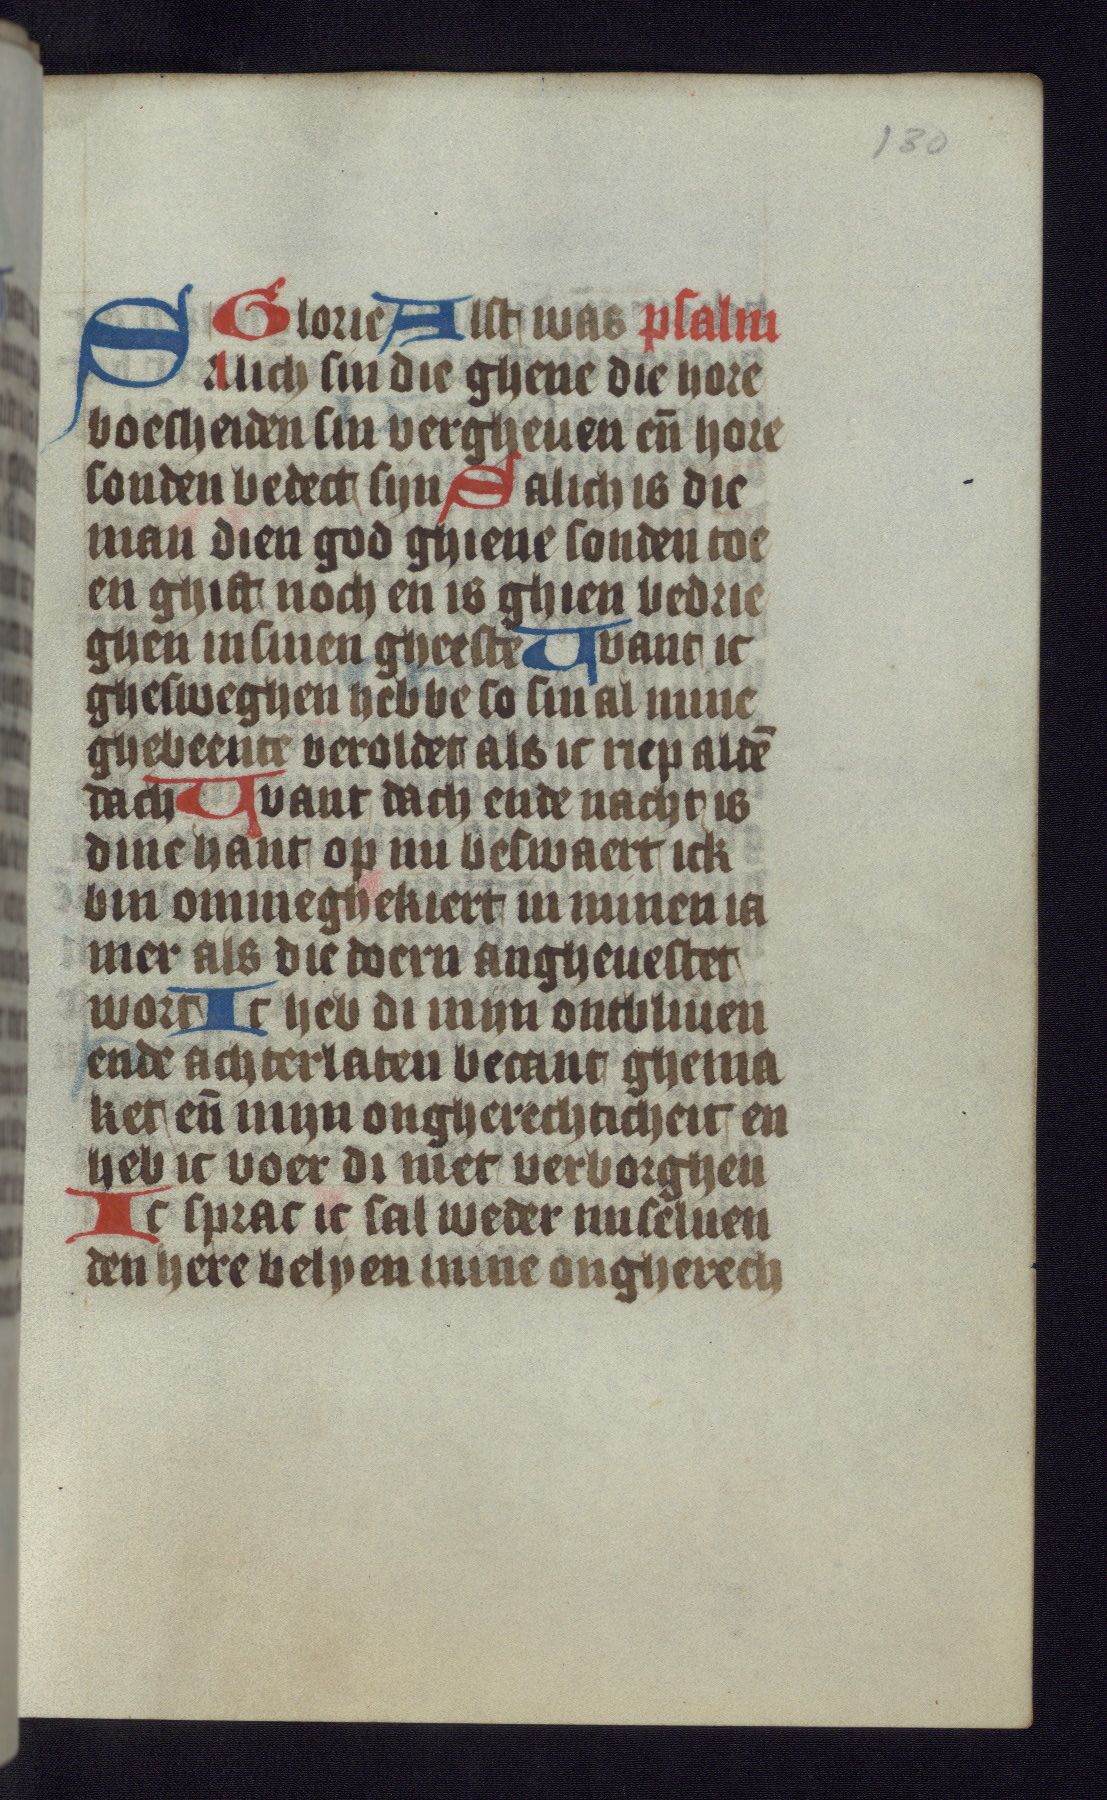 130
Glorie Alst was psalm
Salich sin die ghene die hore
boesheiden sin vergheuen en̄ hore
sonden bedect sijn Salich is die
man dien god ghiene sonden toe
en ghift noch en is ghien bedrie
ghen in sinen gheeste Want ic
ghesweghen hebbe so sin al mine
ghebeente veroldet als ic riep aldē
dach Want dach ende nacht is
dine hant op mi beswaert ick
bin ommeghekiert in minen ia
mer als die doern angheuestet
wort Ic heb di mijn ontbliuen
ende achterlaten becant ghema
ket en̄ mijn ongherechticheit en
heb ic voer di niet verborghen
Ic sprac ic sal weder mi seluen
den here belyen mine ongherech